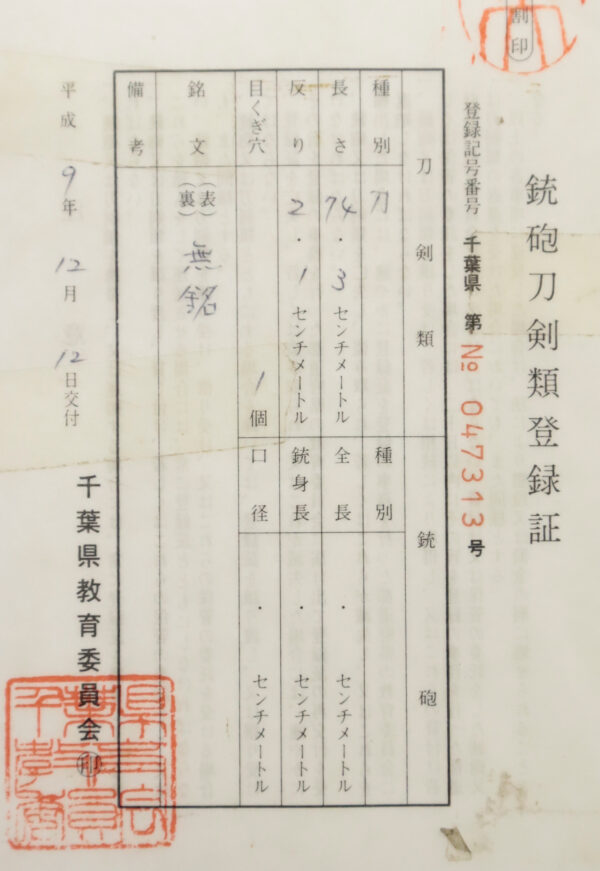 割印
銃砲刀剣類登録証
登録記号番号 千葉県 第 № 047313 号
刀剣類 銃砲
種別 刀 種別
長さ 74.3 センチメートル 全長 ・ センチメートル
反り 2.1 センチメートル 銃身長 ・ センチメートル
目くぎ穴 1 個 口径 ・ センチメートル
銘文 (表) 無銘
(裏)
備考
平成 9 年 12 月 12 日交付
千葉県教育委員会 ㊞